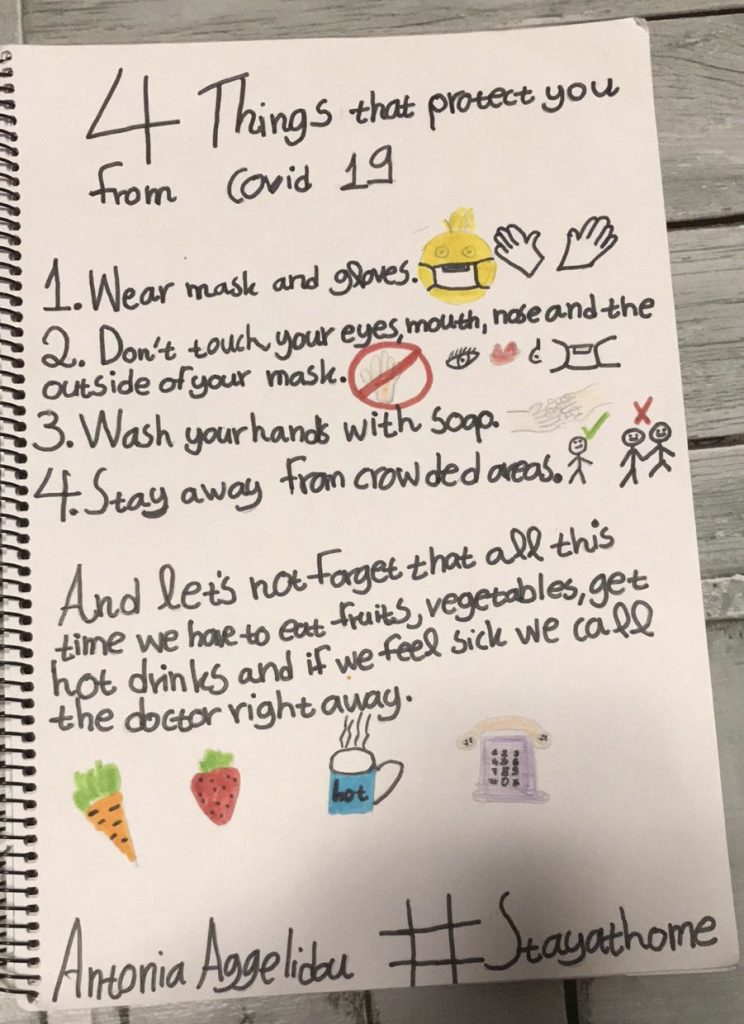 4 Things that protect you
from Covid 19
1. Wear mask and gloves.
2. Don't touch your eyes, mouth, nose and the
outside of your mask.
3. Wash your hands with soap.
4. Stay away from crowded areas.
And let's not forget that all this
time we have to eat fruits, vegetables, get
hot drinks and if we feel sick we call
the doctor right away.
hot
Antonia Aggelidou #Stayathome